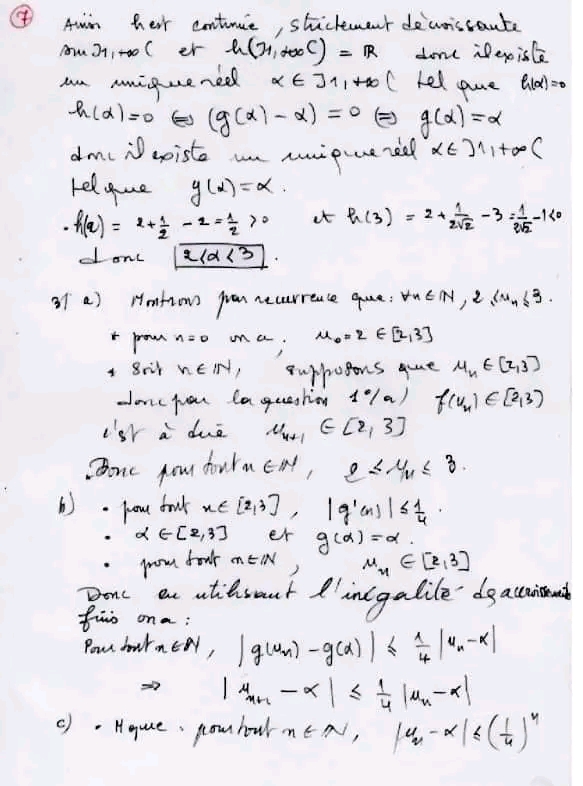 7
Ainsi h est continue, strictement décroissante
sur ]1,+∞[ et h(]1,+∞[) = ℝ donc il existe
un unique réel α ∈ ]1,+∞[ tel que h(α)=0
h(α)=0 ⇔ (g(α) - α) = 0 ⇔ g(α) = α
donc il existe un unique réel α ∈ ]1,+∞[
tel que g(α) = α.
• h(2) = 2 + 1/2 - 2 = 1/2 > 0 et h(3) = 2 + 1/2√2 - 3 = 1/2√2 - 1 < 0
donc 2 < α < 3.
3) a) Montrons par recurrence que : ∀n ∈ ℕ, 2 ≤ u_n ≤ 3.
* pour n=0 on a : u_0 = 2 ∈ [2,3]
* Soit n ∈ ℕ, supposons que u_n ∈ [2,3]
donc par la question 1°/a) f(u_n) ∈ [2,3]
c'est à dire u_{n+1} ∈ [2,3]
Donc pour tout n ∈ ℕ, 2 ≤ u_n ≤ 3.
b) • pour tout x ∈ [2,3], |g'(x)| ≤ 1/4.
• α ∈ [2,3] et g(α) = α.
• pour tout n ∈ ℕ, u_n ∈ [2,3]
Donc en utilisant l'inégalité des accroissements
finis on a :
Pour tout n ∈ ℕ, |g(u_n) - g(α)| ≤ 1/4 |u_n - α|
⇒ |u_{n+1} - α| ≤ 1/4 |u_n - α|
c) • Mque : pour tout n ∈ ℕ, |u_n - α| ≤ (1/4)^n